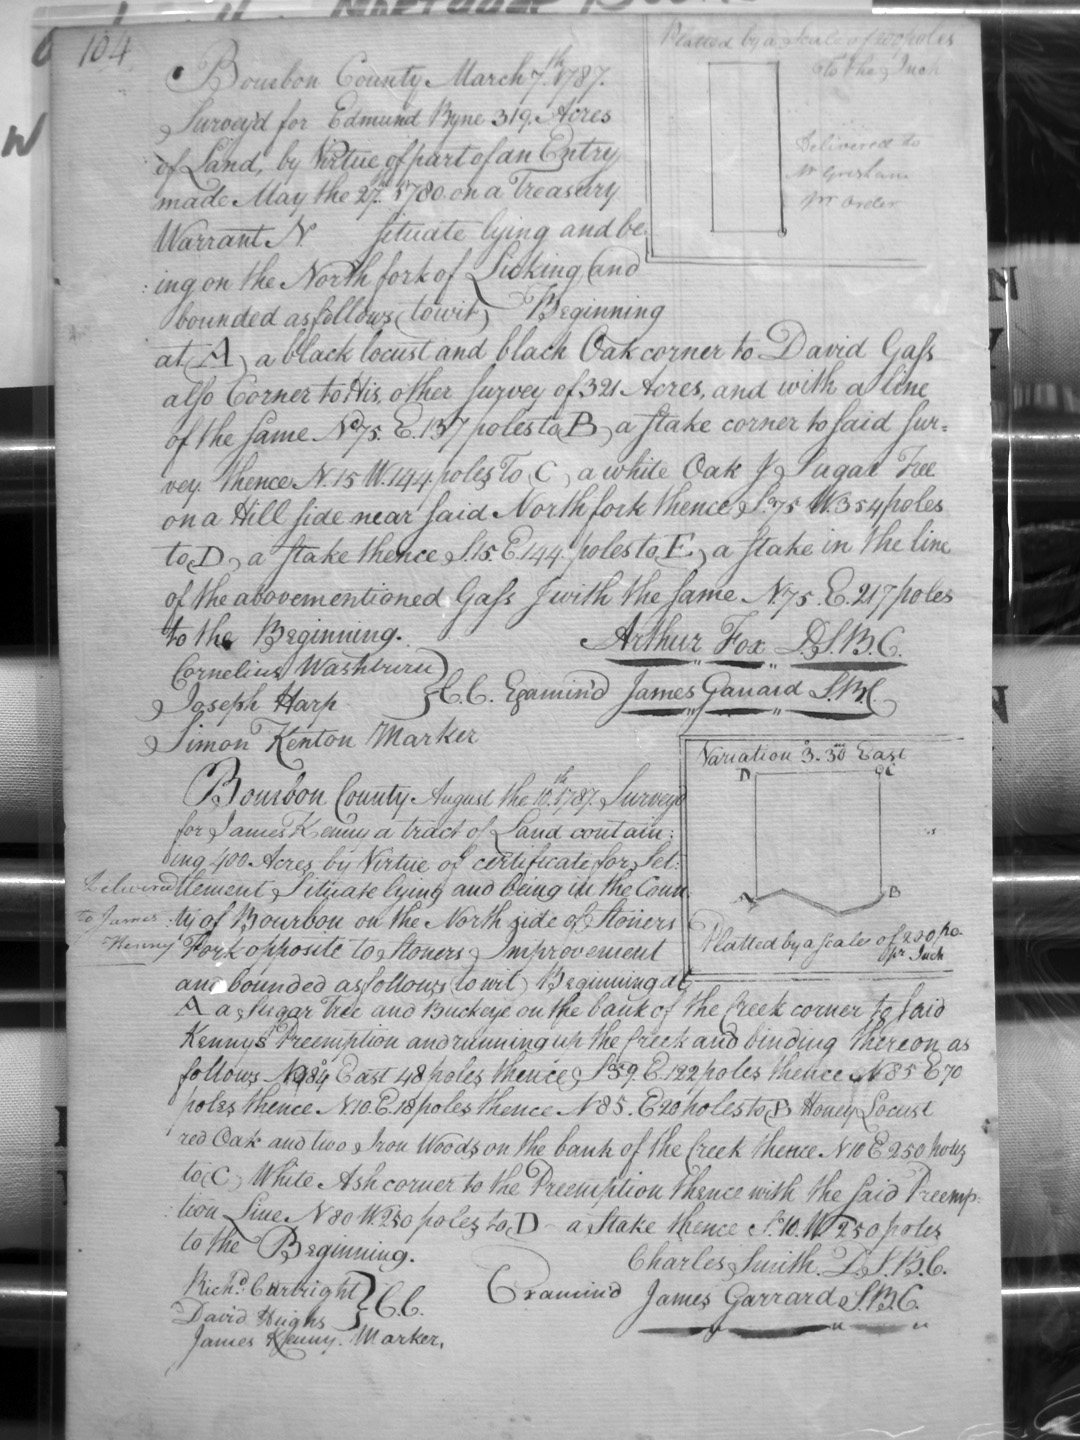 104
Platted by a Scale of 200 poles
to the Inch
Delivered to
Mr Grisham
pr order
Bourbon County March 7th 1787.
Survey'd for Edmund Byne 319. Acres
of Land, by Virtue of part of an Entry
made May the 27th 1780 on a Treasury
Warrant No Situate lying and be
:ing on the North fork of Licking and
bounded as follows (towit) Beginning
at (A) a black locust and black Oak corner to David Gass
also Corner to His other Survey of 321 Acres, and with a line
of the same No 75. E. 137 poles to B) a Stake corner to said Sur=
vey thence N. 15 W. 144 poles To C) a white Oak & Sugar Tree
on a Hill side near said North fork thence S. 75 W. 354 poles
to D) a Stake thence S. 15 E. 144 poles to E) a Stake in the line
of the abovementioned Gass & with the same N 75. E. 217 poles
to the Beginning.
Arthur Fox D.S.B.C.
Cornelius Washburn
Joseph Harp } C.C. Examin'd James Garrard S.B.C.
Simon Kenton Marker
Variation 3.30 East
D C
A B
Platted by a Scale of 200 po
pr Inch
Bourbon County August the 10th 1787. Survey'd
for James Kenny a tract of Land contain:
ing 400 Acres by Virtue of certificate for Set:
tlement Situate lying and being in the Coun
ty of Bourbon on the North side of Stoners
Fork opposite to Stoners Improvement
and bounded as follows (towit) Beginning at
Delivered
to James
Kenny
A a Sugar Tree and Buckeye on the bank of the Creek corner to said
Kenny's Preemption and running up the Creek and binding thereon as
follows N 84 East 48 poles thence S 59. E. 122 poles thence N 85 E 70
poles thence N 10. E. 18 poles thence N 85. E 20 poles to B Honey Locust
red Oak and two Iron Woods on the bank of the Creek thence N 10 E 250 poles
to C) White Ash corner to the Preemption thence with the said Preemp-
:tion Line N 80 W. 250 poles to D - a Stake thence S. 10. W 250 poles
to the Beginning.
Charles Smith. D.S.B.C.
Richd. Cartright
David Hughs } C.C. Examin'd James Garrard S.B.C.
James Kenny. Marker.